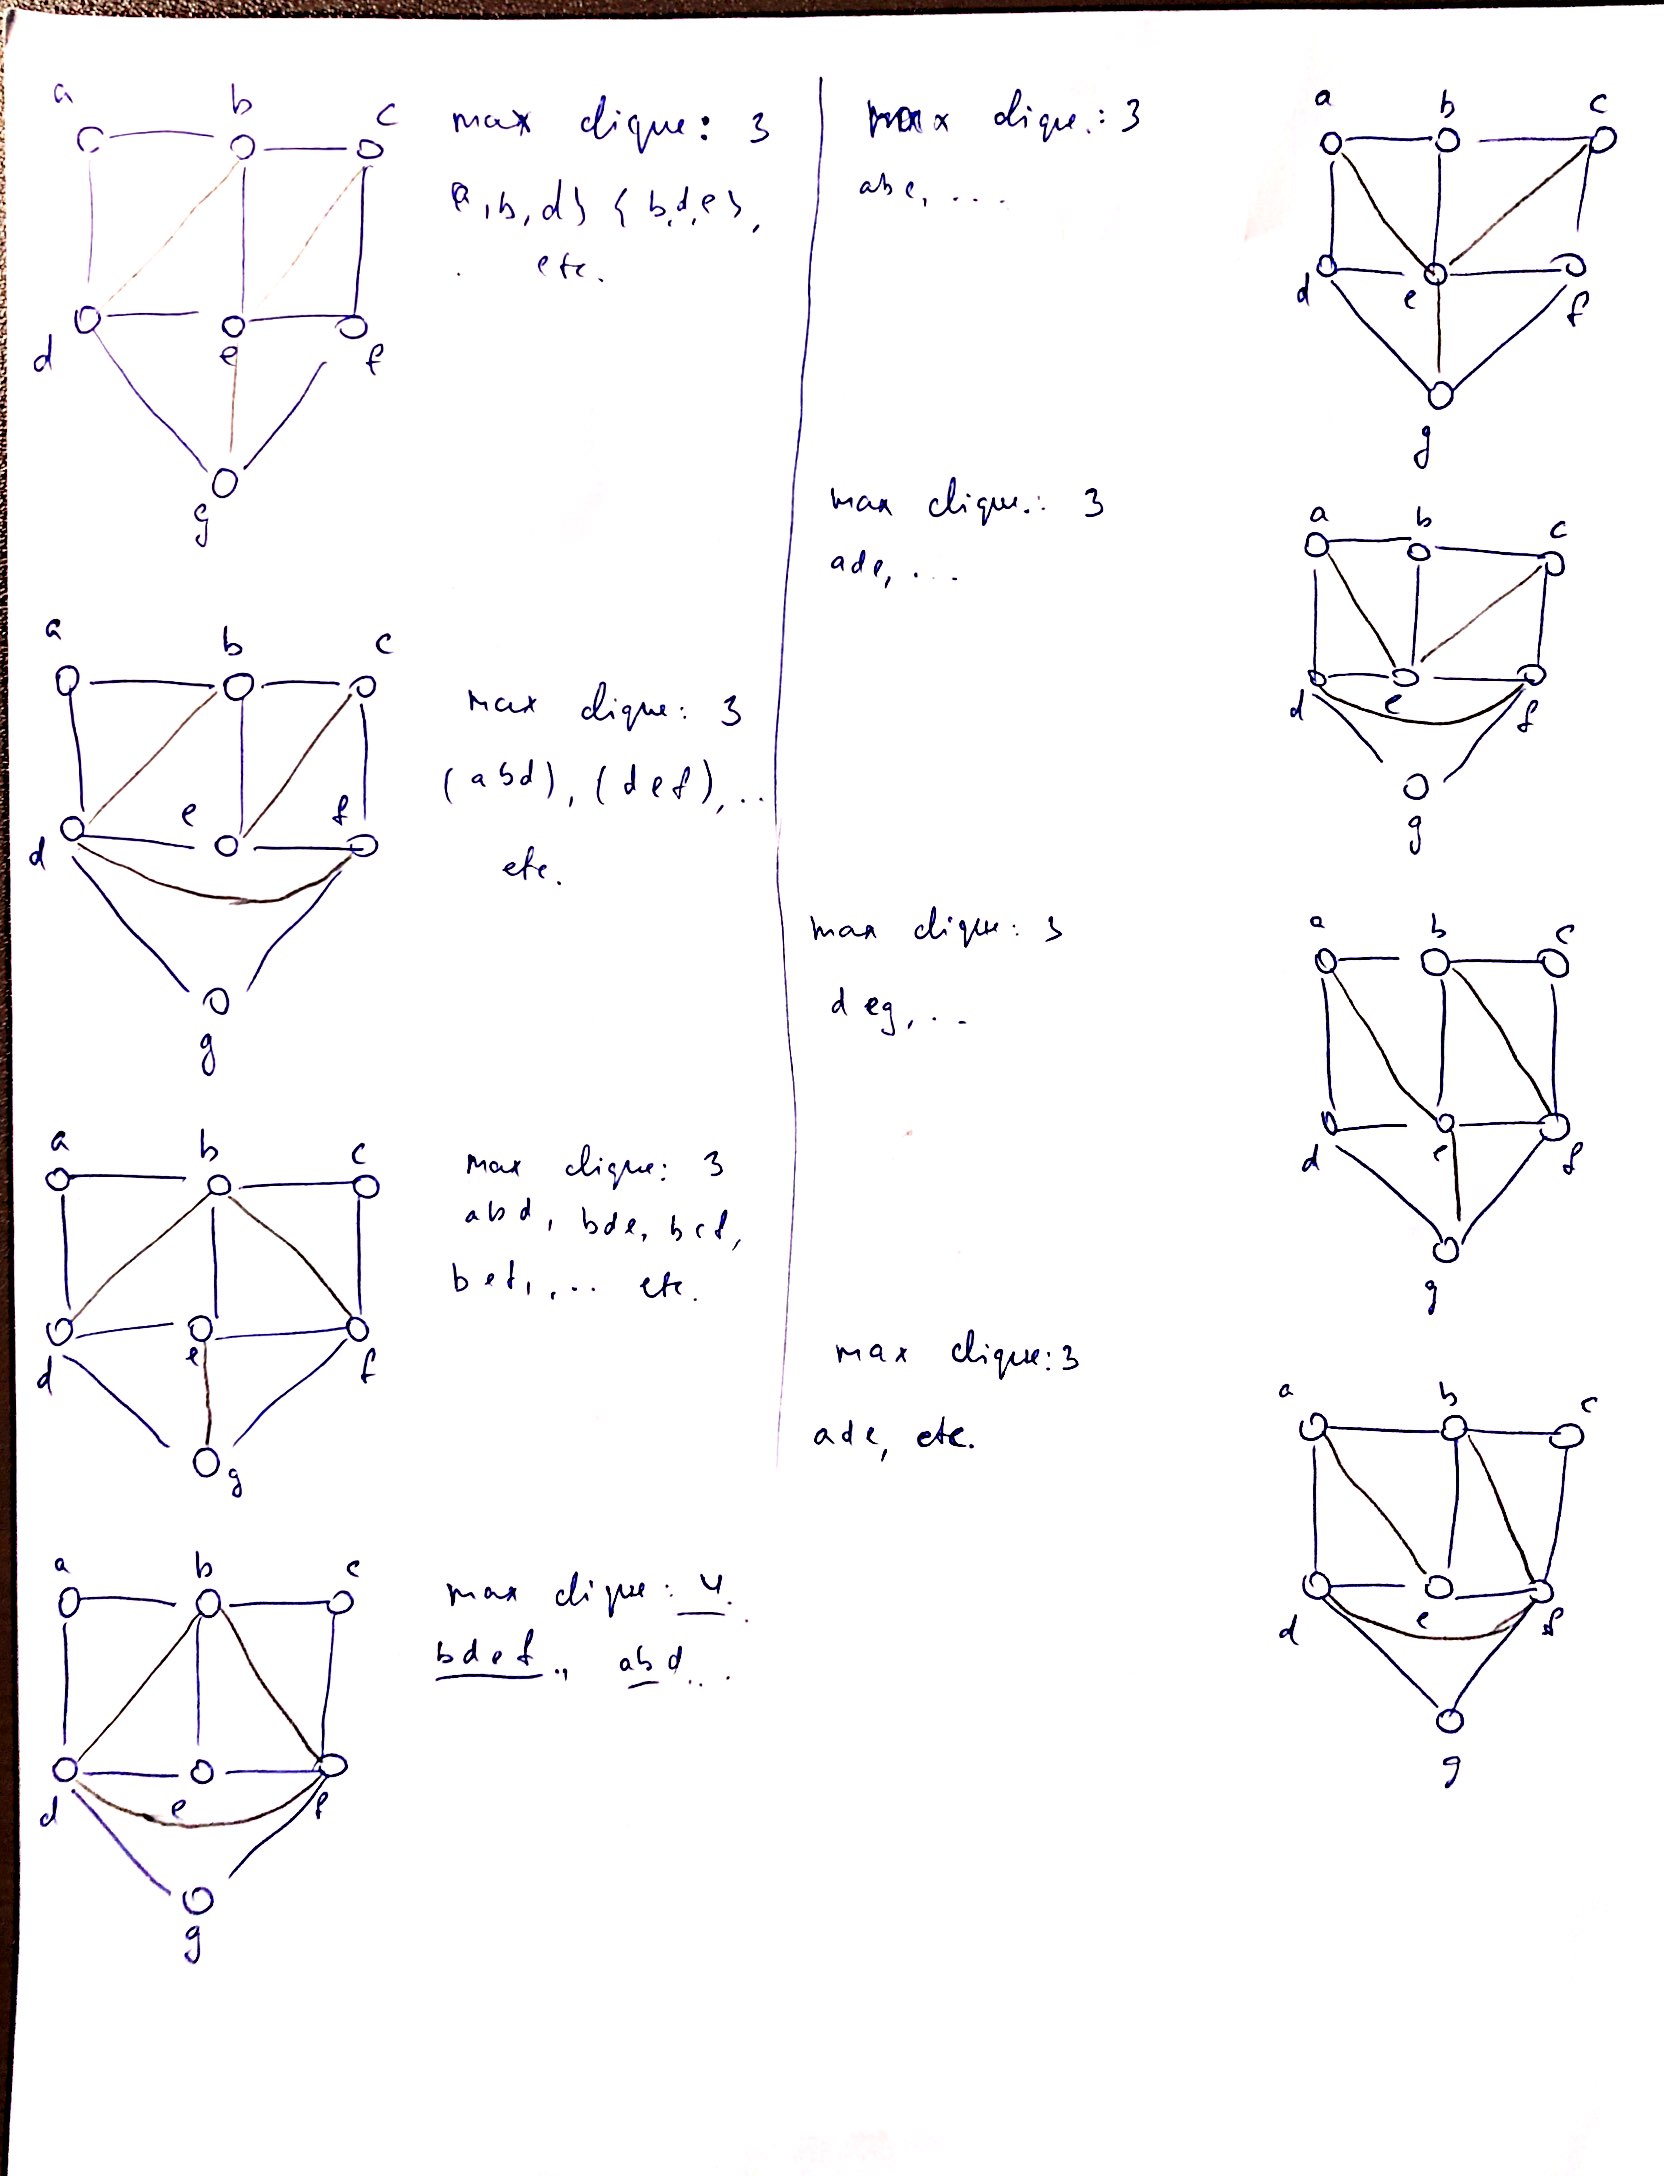 a b c
max clique: 3
a, b, d} {b,d,e},
etc.
d e f
g
a b c
max clique: 3
(abd), (def), ..
etc.
e f
d
g
a b c
max clique: 3
abd, bde, bcf,
bef, ,.. etc.
d e f
g
a b c
max clique: 4.
bdef.., abd...
d e f
g
max clique.: 3
abe, ...
a b c
d e f
g
max clique.: 3
ade, ...
a b c
d e f
g
max clique: 3
deg, ..
a b c
d e f
g
max clique: 3
ade, etc.
a b c
d e f
g